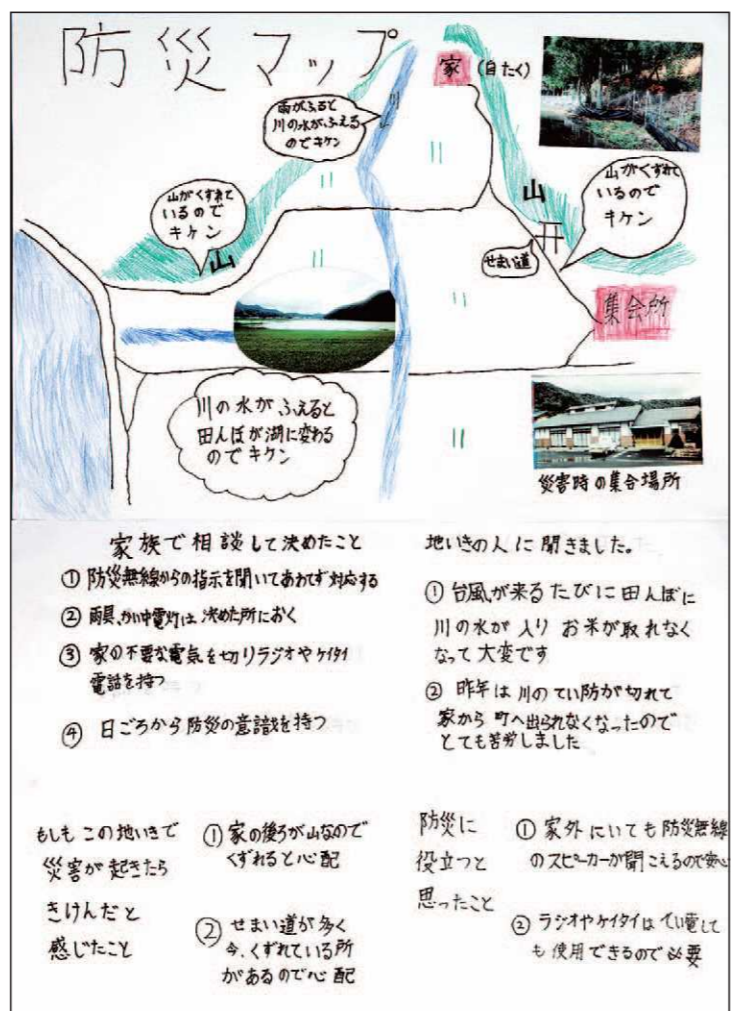 防災マップ
家
(自たく)
雨がふると
川の水がふえる
のでキケン
川
山がくずれて
いるので
キケン
山
山
山がくずれて
いるので
キケン
せまい道
集会所
川の水がふえると
田んぼが湖に変わる
のでキケン
災害時の集合場所
家族で相談して決めたこと
① 防災無線からの指示を聞いてあわてず対応する
② 雨具、かい中電灯は、決めた所におく
③ 家の不要な電気を切りラジオやケイタイ
電話を持つ
④ 日ごろから防災の意識を持つ
地いきの人に聞きました。
① 台風が来るたびに田んぼに
川の水が入りお米が取れなく
なって大変です
② 昨年は川のてい防が切れて
家から町へ出られなくなったので
とても苦労しました
もしもこの地いきで
災害が起きたら
きけんだと
感じたこと
① 家の後ろが山なので
くずれると心配
② せまい道が多く
今、くずれている所
があるので心配
防災に
役立つと
思ったこと
① 家外にいても防災無線
のスピーカーが聞こえるので安心
② ラジオやケイタイはてい電して
も使用できるので必要